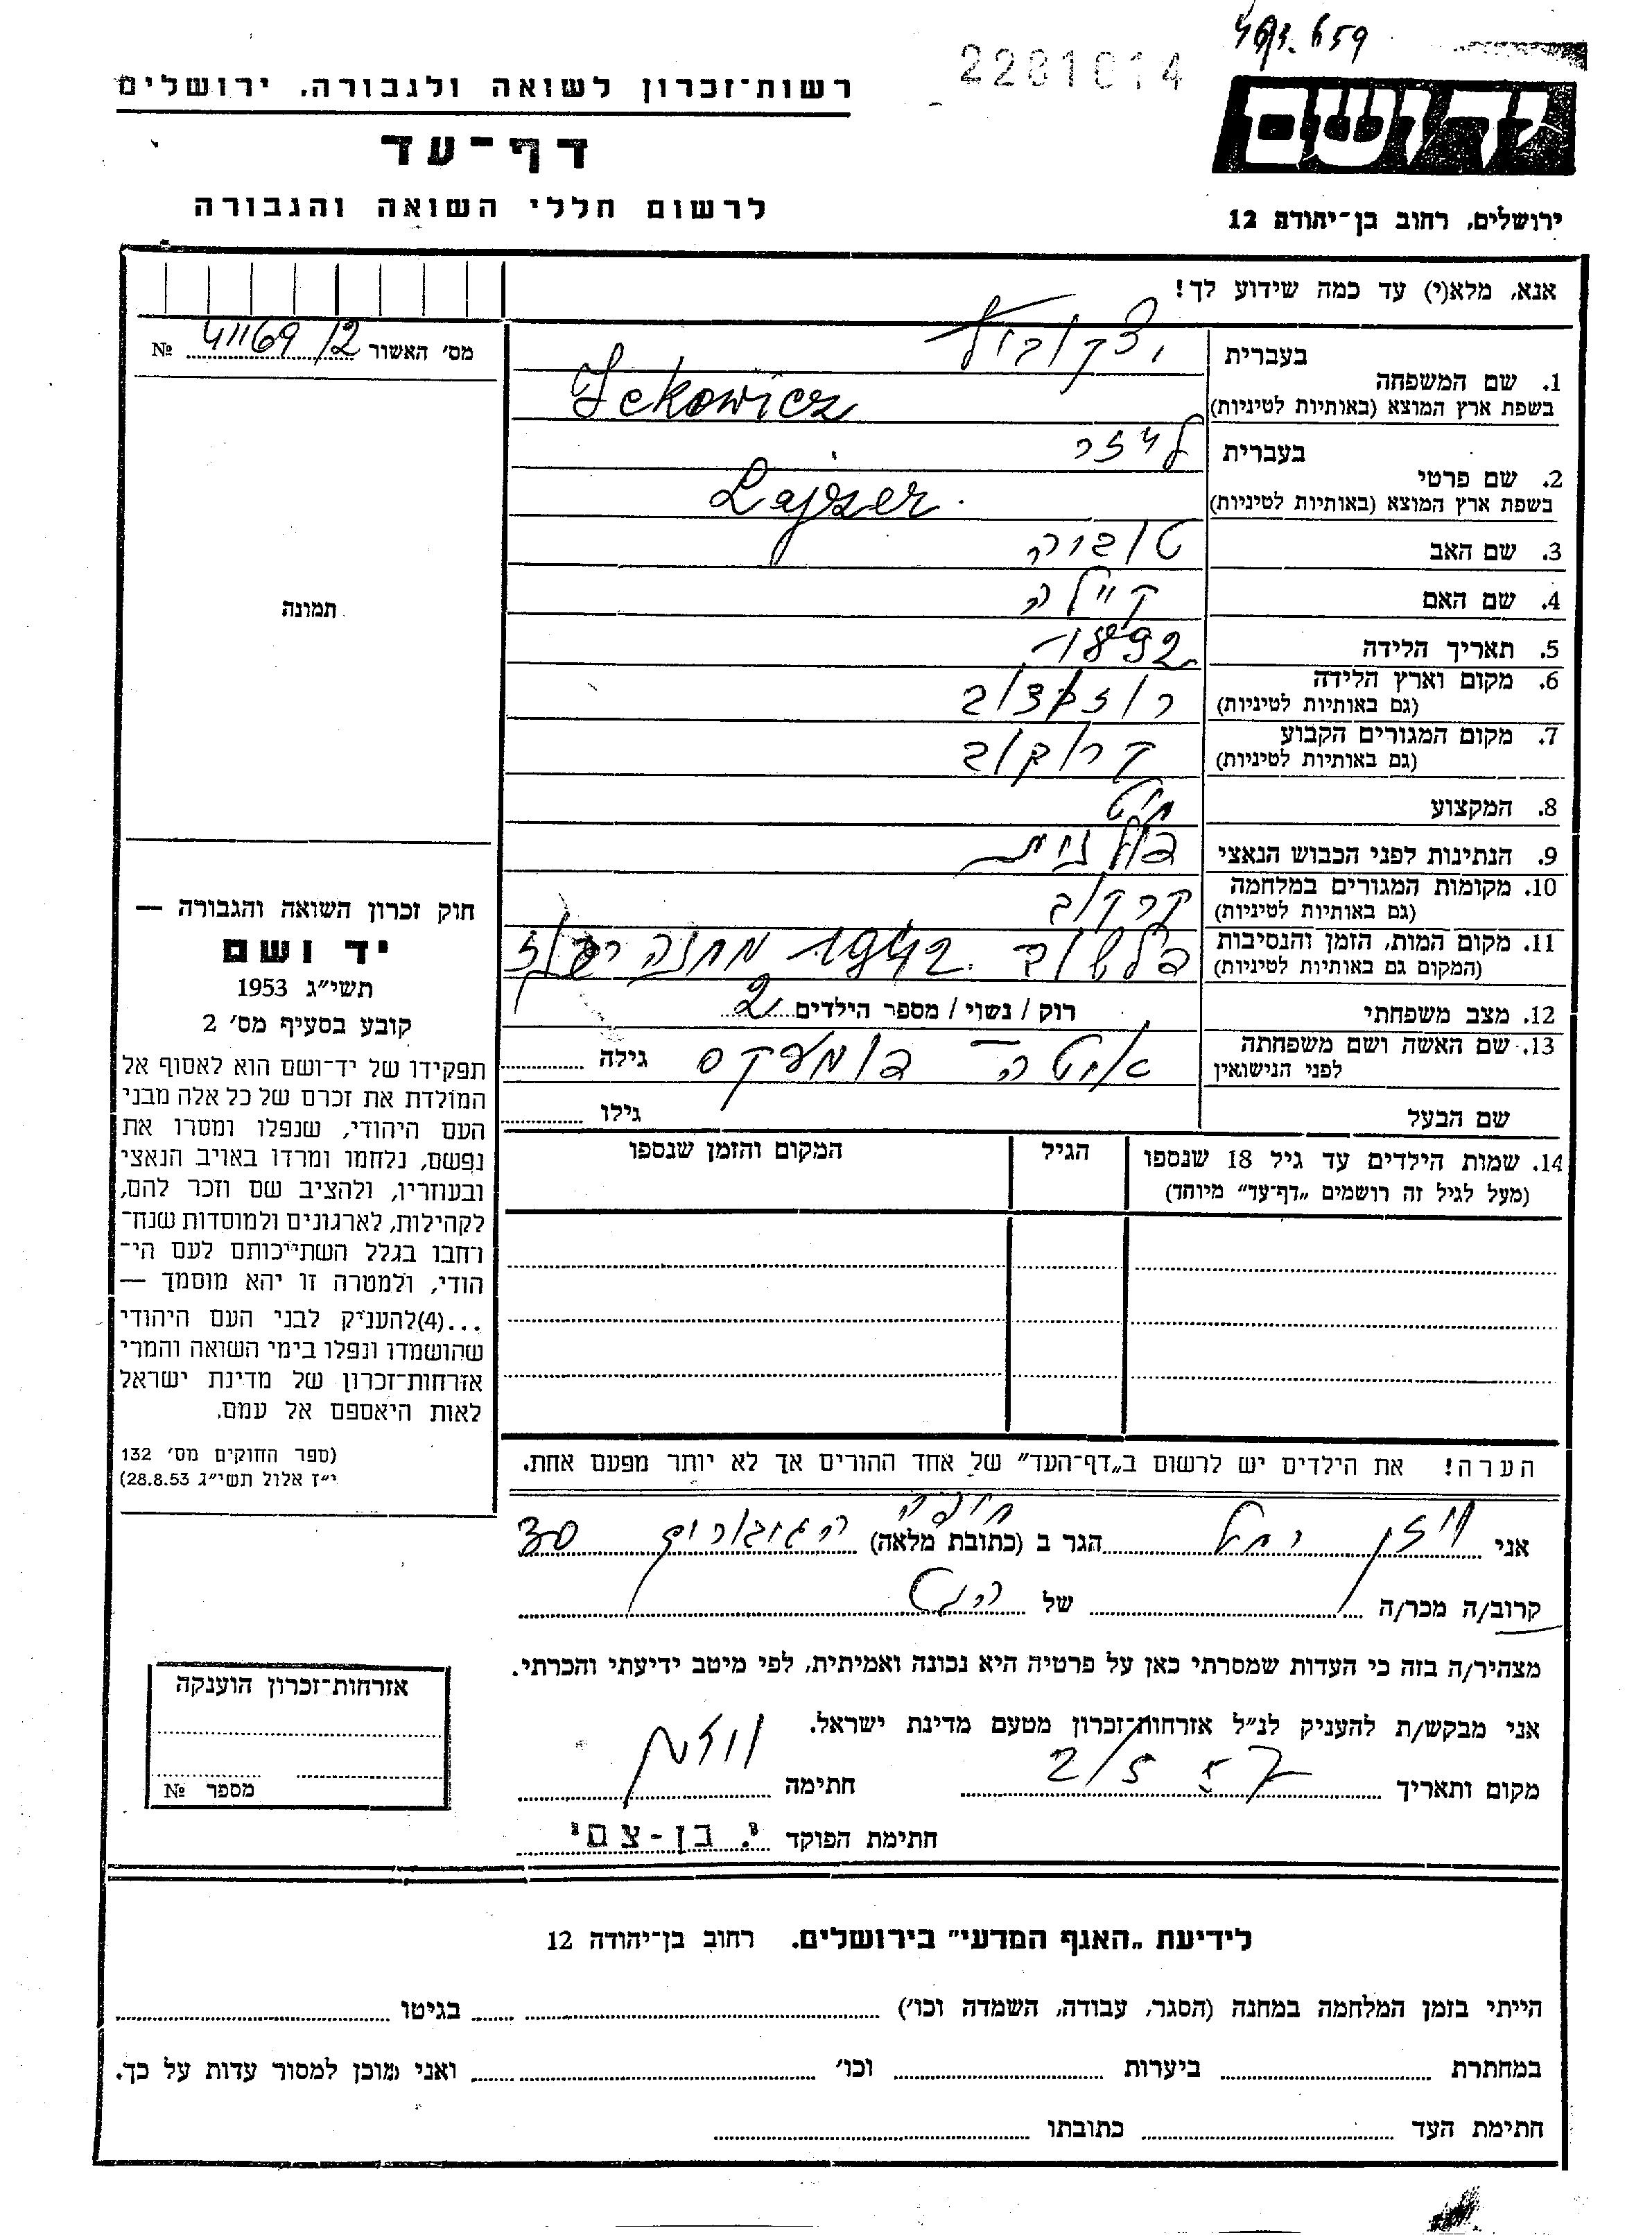 496/3. 659
2281014
רשות־זכרון לשואה ולגבורה, ירושלים
דף־עד
לרשום חללי השואה והגבורה
יד ושם
ירושלים, רחוב בן־יהודה 12
אנא, מלא(י) עד כמה שידוע לך!
מס׳ האשור 41169/2 №
תמונה
1. שם המשפחה בעברית יצקוביץ
בשפת ארץ המוצא (באותיות לטיניות) Jekowicz
2. שם פרטי בעברית לייזר
בשפת ארץ המוצא (באותיות לטיניות) Lajzer
3. שם האב טוביה
4. שם האם קיילה
5. תאריך הלידה 1892
6. מקום וארץ הלידה
(גם באותיות לטיניות)
7. מקום המגורים הקבוע קרקוב
(גם באותיות לטיניות)
8. המקצוע חייט
9. הנתינות לפני הכבוש הנאצי פולנית
10. מקומות המגורים במלחמה קרקוב
(גם באותיות לטיניות)
11. מקום המות, הזמן והנסיבות פלשוב 1942 מחנה ריכוז
(המקום גם באותיות לטיניות)
12. מצב משפחתי רוק / נשוי / מספר הילדים 2
13. שם האשה ושם משפחתה לפני הנישואין גילה
שם הבעל גילו
14. שמות הילדים עד גיל 18 שנספו הגיל המקום והזמן שנספו
(מעל לגיל זה רושמים „דף־עד” מיוחד)
הערה! את הילדים יש לרשום ב„דף־העד” של אחד ההורים אך לא יותר מפעם אחת.
חוק זכרון השואה והגבורה —
יד ושם
תשי״ג 1953
קובע בסעיף מס׳ 2
תפקידו של יד־ושם הוא לאסוף אל
המולדת את זכרם של כל אלה מבני
העם היהודי, שנפלו ומסרו את
נפשם, נלחמו ומרדו באויב הנאצי
ובעוזריו, ולהציב שם וזכר להם,
לקהילות, לארגונים ולמוסדות שנח־
רחבו בגלל השתייכותם לעם הי־
הודי, ולמטרה זו יהא מוסמך —
...(4)להעניק לבני העם היהודי
שהושמדו ונפלו בימי השואה והמרי
אזרחות־זכרון של מדינת ישראל
לאות היאספם אל עמם.
(ספר החוקים מס׳ 132
י״ז אלול תשי״ג 28.8.53)
אני רחל הגר ב (כתובת מלאה) חיפה הגיבורים 30
קרוב/ה מכר/ה של
מצהיר/ה בזה כי העדות שמסרתי כאן על פרטיה היא נכונה ואמיתית, לפי מיטב ידיעתי והכרתי.
אני מבקש/ת להעניק לנ״ל אזרחות־זכרון מטעם מדינת ישראל.
מקום ותאריך 2/5 57 חתימה
חתימת הפוקד י. בן-צמי
אזרחות־זכרון הוענקה
מספר №
לידיעת „האגף המדעי” בירושלים. רחוב בן־יהודה 12
הייתי בזמן המלחמה במחנה (הסגר, עבודה, השמדה וכו׳) בגיטו
במחתרת ביערות וכו׳ ואני מוכן למסור עדות על כך.
חתימת העד כתובתו